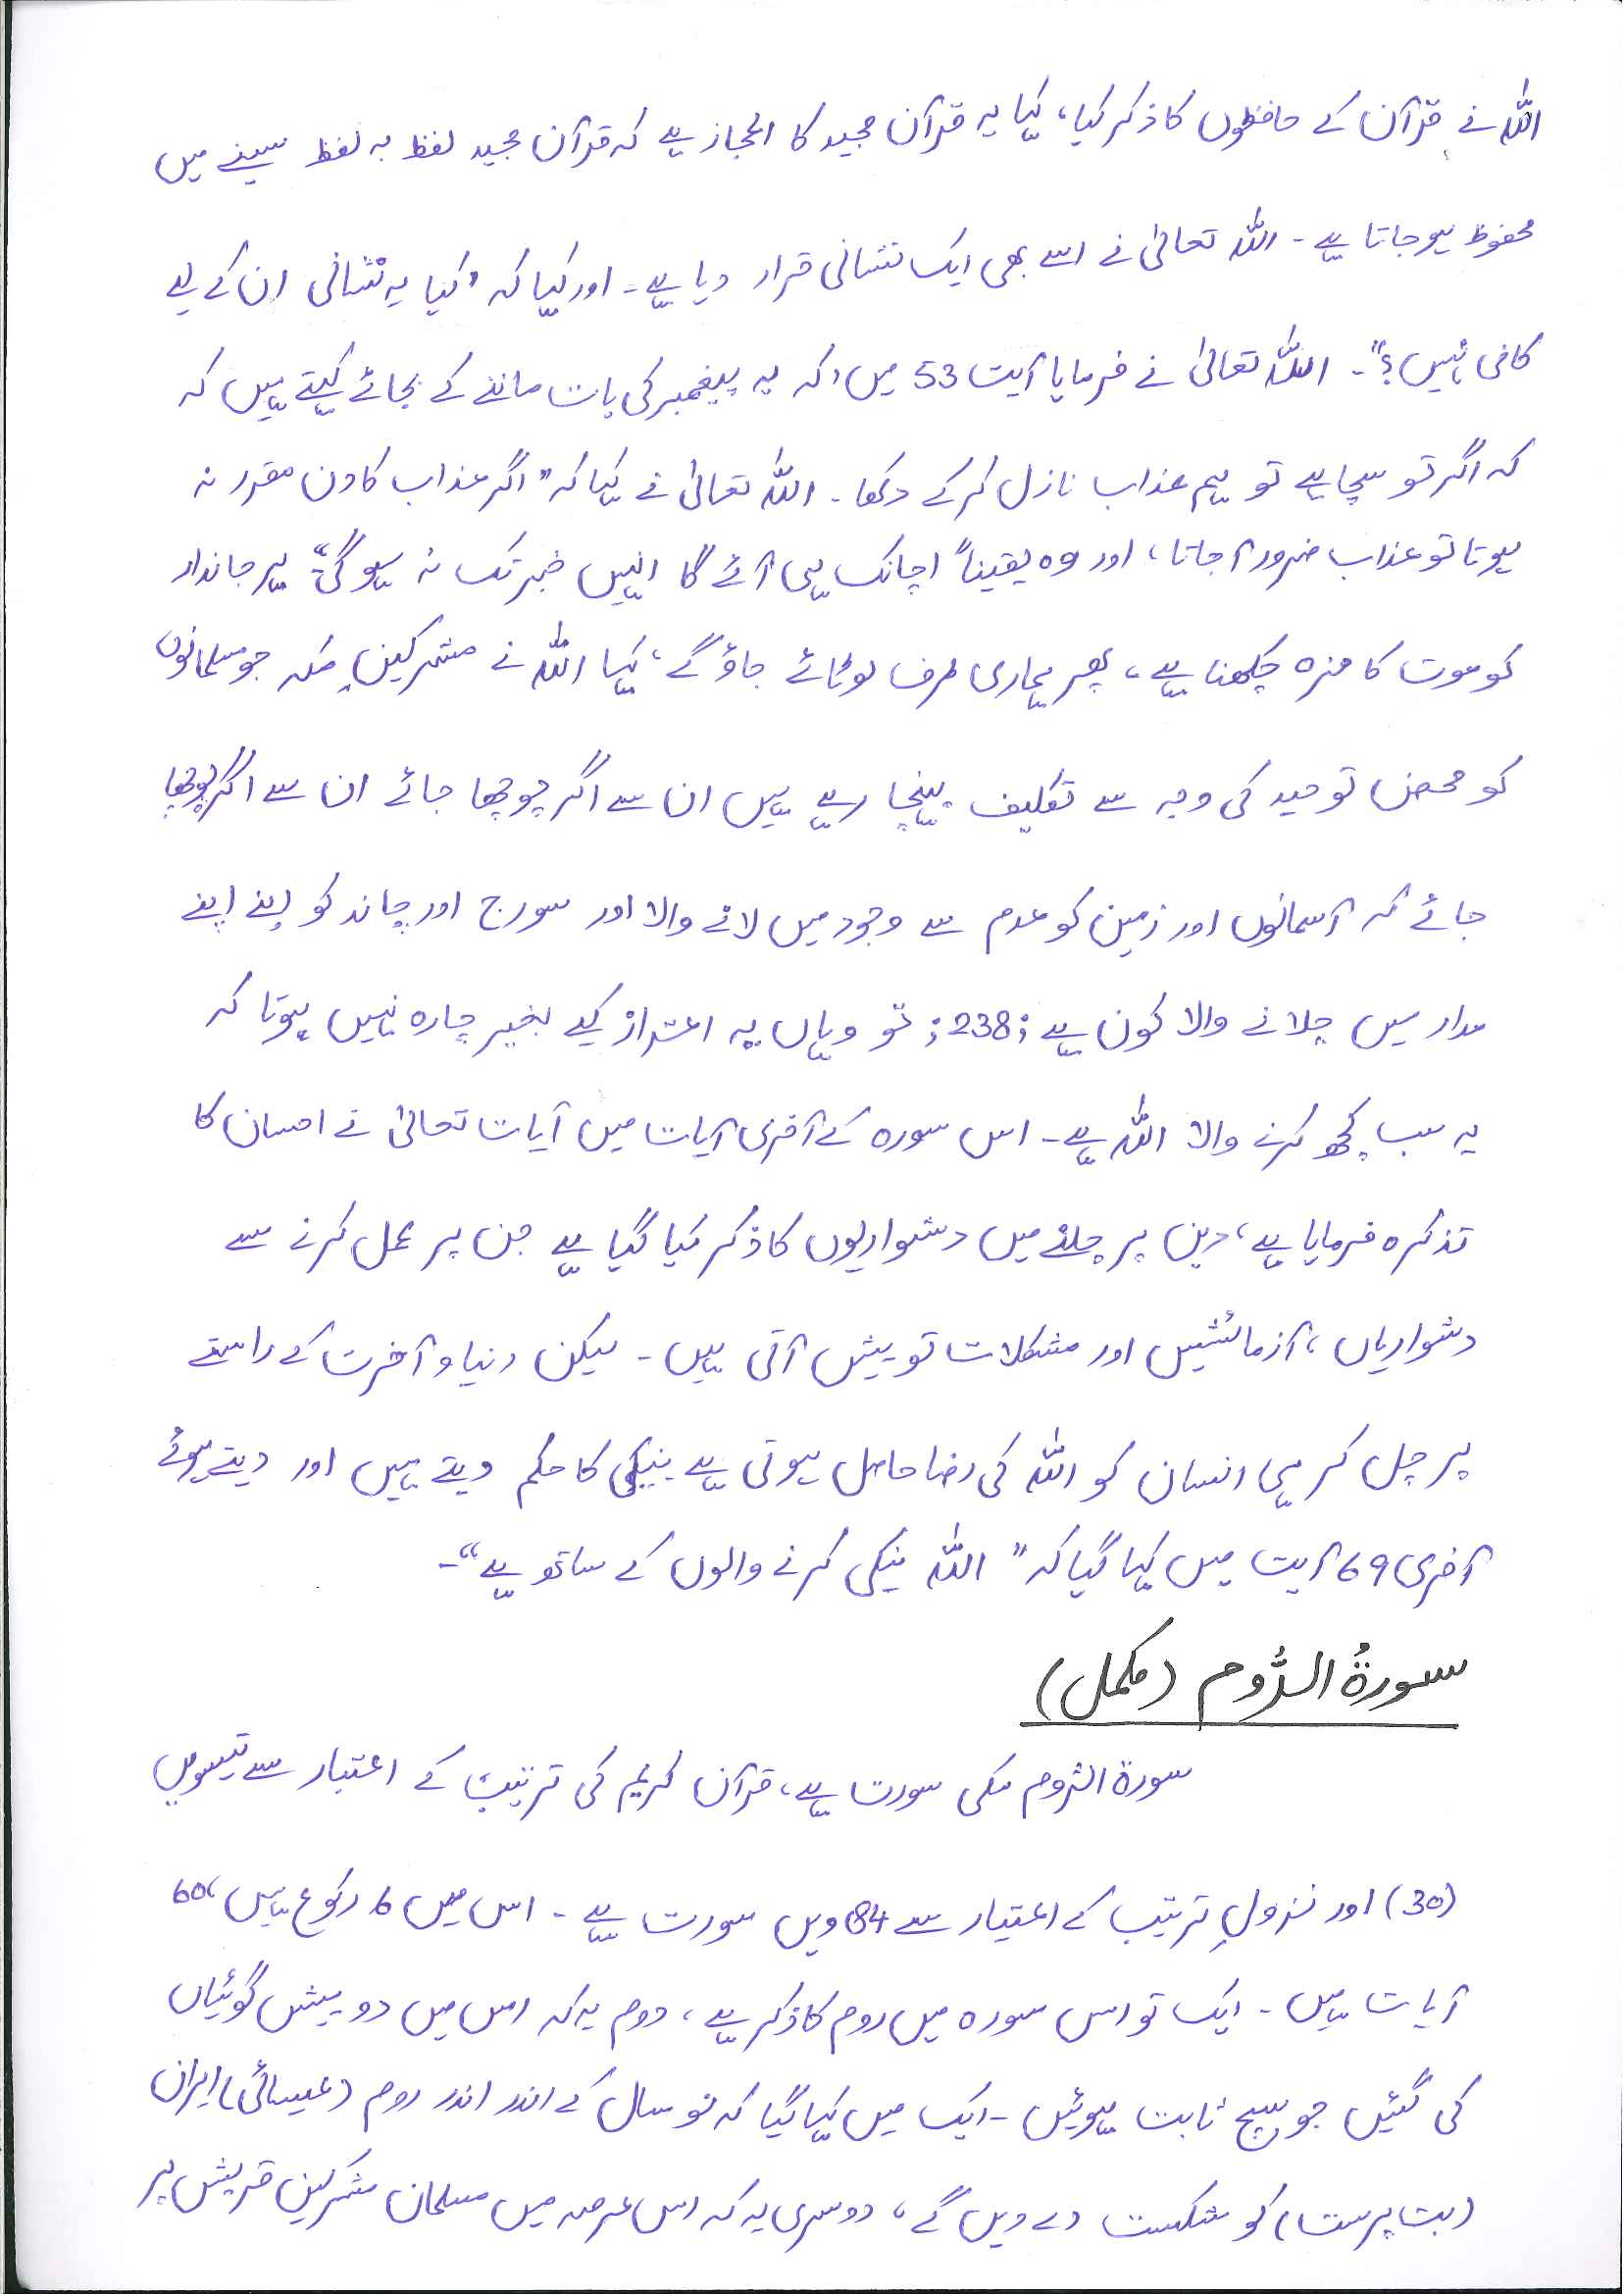 اللہ نے قرآن کے حافظوں کا ذکر کیا، کہا یہ قرآن مجید کا اعجاز ہے کہ قرآن مجید لفظ بہ لفظ سینے میں
محفوظ ہو جاتا ہے۔ اللہ تعالیٰ نے اسے بھی ایک نشانی قرار دیا ہے۔ اور کہا کہ "کیا یہ نشانی ان کے لیے
کافی نہیں؟"۔ اللہ تعالیٰ نے فرمایا آیت 53 میں کہ یہ پیغمبر کی بات ماننے کے بجائے کہتے ہیں کہ
کہ اگر تو سچا ہے تو ہم عذاب نازل کر کے دکھا۔ اللہ تعالیٰ نے کہا کہ "اگر عذاب کا دن مقرر نہ
ہوتا تو عذاب ضرور آ جاتا، اور وہ یقیناً اچانک ہی آئے گا انہیں خبر تک نہ ہو گی"۔ ہر جاندار
کو موت کا مزہ چکھنا ہے، پھر ہماری طرف لوٹائے جاؤ گے، کہا اللہ نے مشرکینِ مکہ جو مسلمانوں
کو محض توحید کی وجہ سے تکلیف پہنچا رہے ہیں ان سے اگر پوچھا جائے ان سے اگر پوچھا
جائے کہ آسمانوں اور زمین کو عدم سے وجود میں لانے والا اور سورج اور چاند کو اپنے اپنے
مدار میں چلانے والا کون ہے ;238; تو وہاں یہ اعتراف کیے بغیر چارہ نہیں ہوتا کہ
یہ سب کچھ کرنے والا اللہ ہے۔ اس سورہ کے آخری آیات میں آیات تعالیٰ نے احسان کا
تذکرہ فرمایا ہے، دین پر چلنے میں دشواریوں کا ذکر کیا گیا ہے جن پر عمل کرنے سے
دشواریاں، آزمائشیں اور مشکلات تو پیش آتی ہیں۔ لیکن دنیا و آخرت کے راستے
پر چل کر ہی انسان کو اللہ کی رضا حاصل ہوتی ہے نیکی کا حکم دیتے ہیں اور دیتے ہوئے
آخری 69 آیت میں کہا گیا کہ "اللہ نیکی کرنے والوں کے ساتھ ہے"۔
سورۃُ الرُّوم (مکمل)
سورۃ الرُّوم مکی سورت ہے، قرآن کریم کی ترتیب کے اعتبار سے تیسویں
(30) اور نزولِ ترتیب کے اعتبار سے 84 ویں سورت ہے۔ اس میں 6 رکوع ہیں، 60
آیات ہیں۔ ایک تو اس سورہ میں روم کا ذکر ہے، دوم یہ کہ اس میں دو پیش گوئیاں
کی گئیں جو سچ ثابت ہوئیں۔ ایک میں کہا گیا کہ نو سال کے اندر اندر روم (عیسائی) ایران
(بت پرست) کو شکست دے دیں گے، دوسری یہ کہ اس عرصہ میں مسلمان مشرکین قریش پر